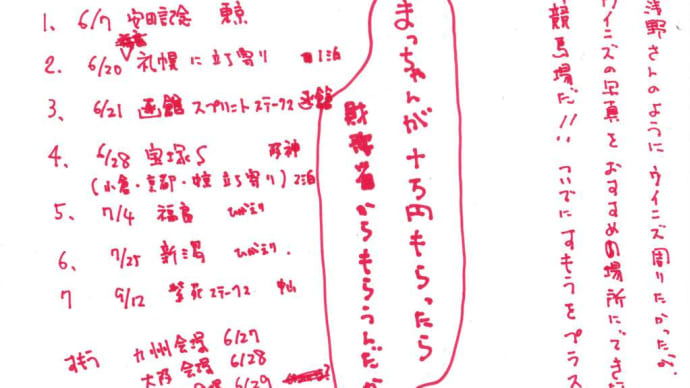 浅野さんのように ウイニズ周りたかったが、
ウイニズの写真を おすすめ場所にでき
競馬場だ!! ついでにすもうをプラス
まっちゃんが十万円もらったら
財務省からもらうんだか
1、 6/7 安田記念 東京
2. 6/20 札幌に立ち寄り 1泊
3、 6/21 函館スプリントステークス 函館
4. 6/28 宝塚S 阪神
(小倉・京都・ 立ち寄り) 2泊
5. 7/4 福島 ひがえり
6、 7/25 新潟 ひがえり.
7 9/12 紫苑ステークス 中山
すもう 九州会場 6/27
大阪会場 6/28
6/29